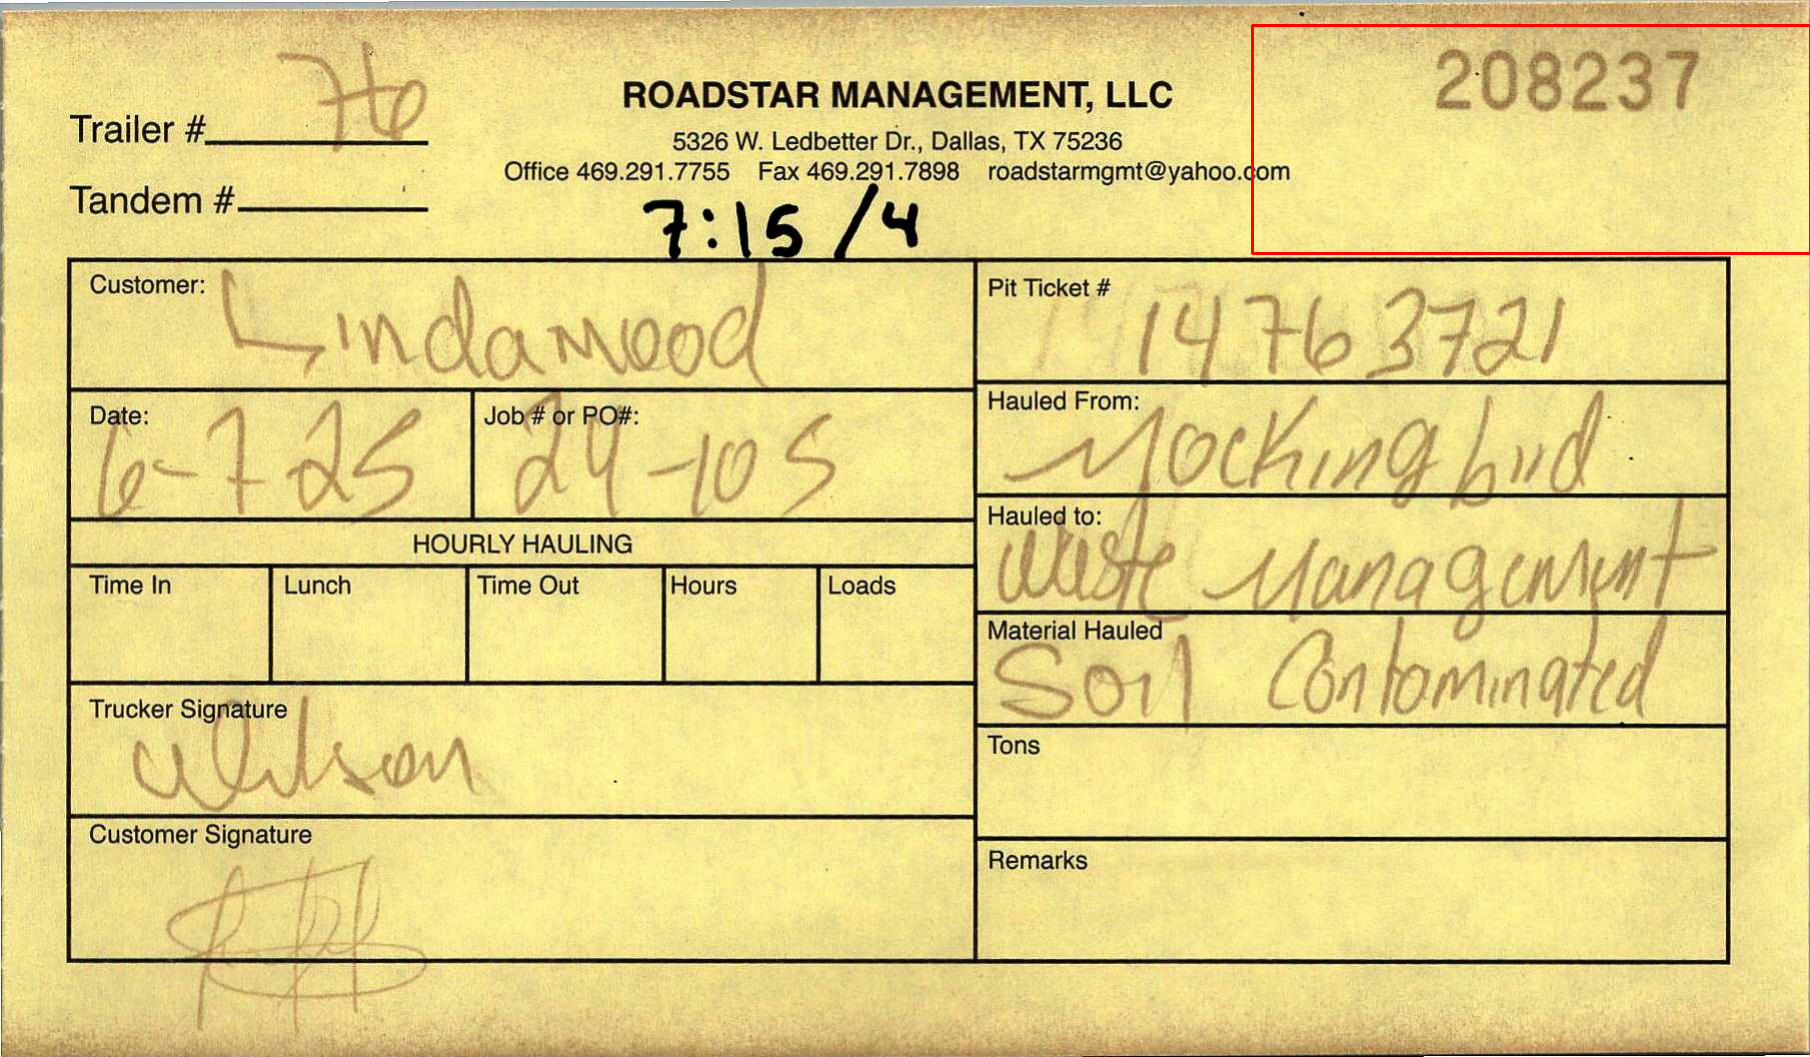 208237
Trailer # 76
ROADSTAR MANAGEMENT, LLC
5326 W. Ledbetter Dr., Dallas, TX 75236
Office 469.291.7755 Fax 469.291.7898 roadstarmgmt@yahoo.com
Tandem #
7:15 /4
Customer: Lindamood
Pit Ticket # 14763721
Date: 6-7-25
Job # or PO#: 24-105
Hauled From: Mockingbird
Hauled to: Waste Management
HOURLY HAULING
Time In Lunch Time Out Hours Loads
Material Hauled Soil Contaminated
Trucker Signature Wilson
Tons
Customer Signature
Remarks